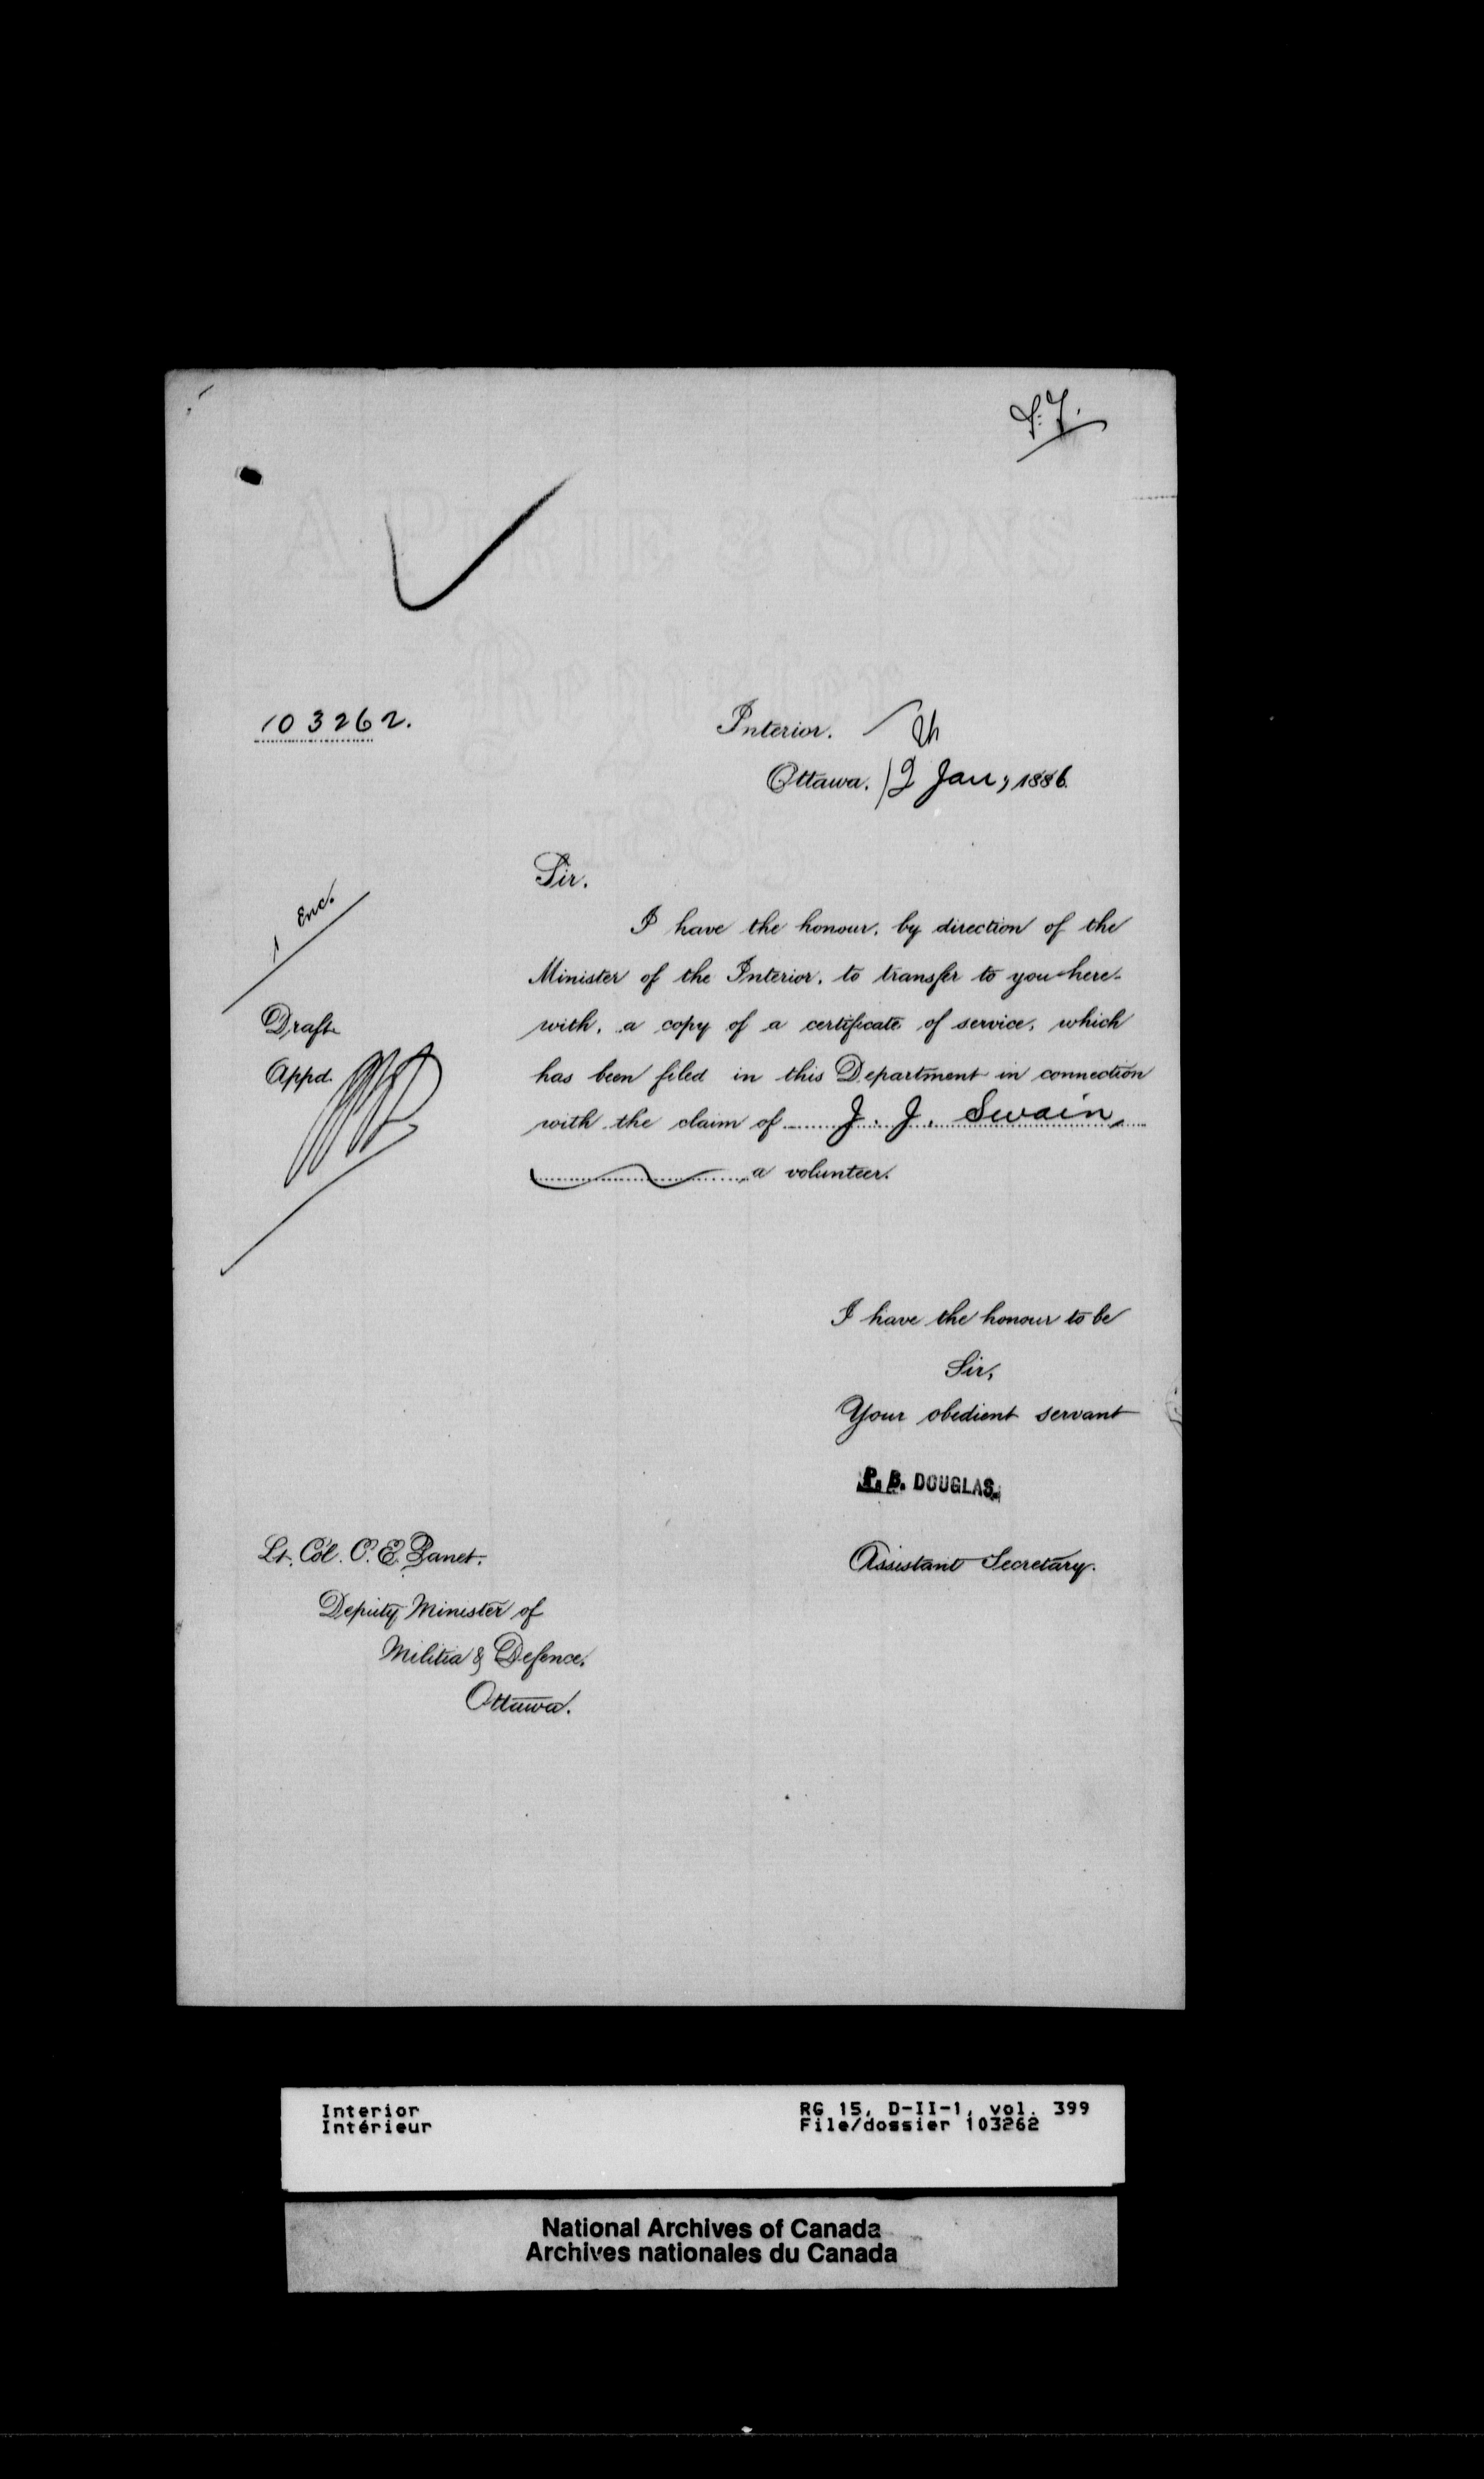 103262.
Interior.
Ottawa, 12 Jan, 1886.
1 Enc.
Draft
Appd.
Sir.
I have the honour, by direction of the
Minister of the Interior, to transfer to you here-
with, a copy of a certificate of service, which
has been filed in this Department in connection
with the claim of J. J. Swain,
a volunteer.
I have the honour to be
Sir,
Your obedient servant
P. B. DOUGLAS.
Assistant Secretary.
Lt. Col. C. E. Panet.
Deputy Minister of
Militia & Defence.
Ottawa.
Interior
Intérieur
RG 15, D-II-1, vol. 399
File/dossier 103262
National Archives of Canada
Archives nationales du Canada